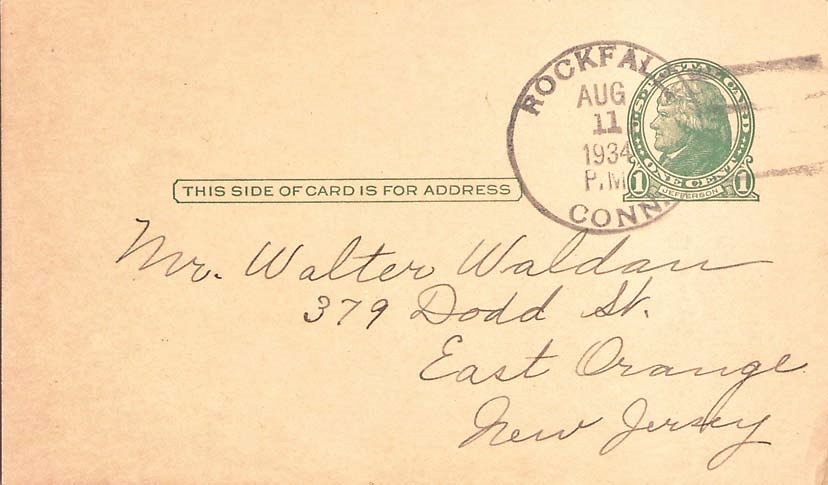 ROCKFALL
AUG
11
1934
P.M.
CONN.
U.S. POSTAL CARD
ONE CENT
1 JEFFERSON 1
THIS SIDE OF CARD IS FOR ADDRESS
Mr. Walter Waldau
379 Dodd St.
East Orange
New Jersey